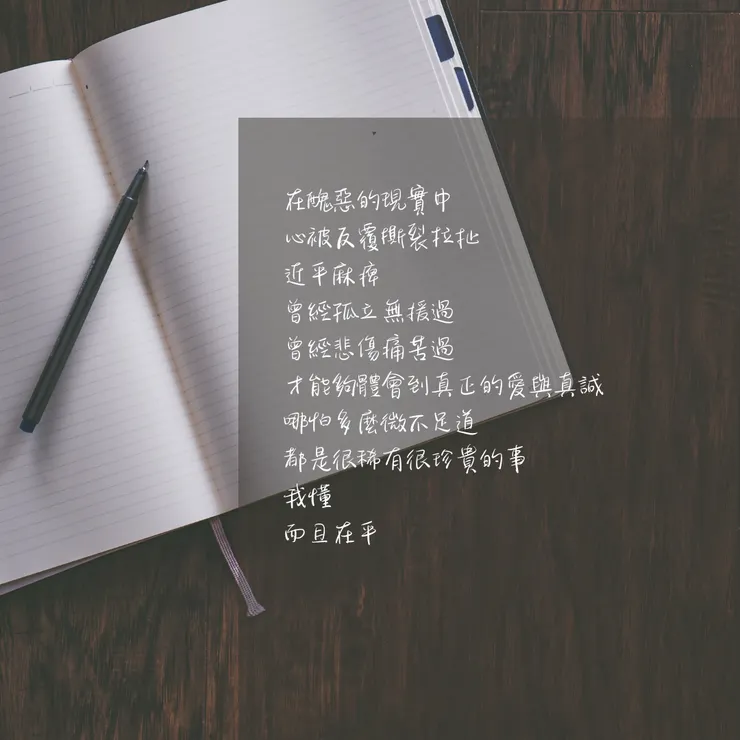 在醜惡的現實中
心被反覆撕裂拉扯
近乎麻痺
曾經孤立無援過
曾經悲傷痛苦過
才能夠體會到真正的愛與真誠
哪怕多麼微不足道
都是很稀有很珍貴的事
我懂
而且在乎